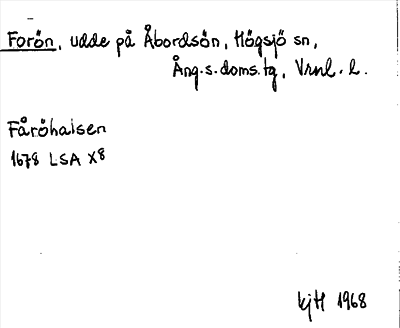 Forön, udde på Åbordsön, Högsjö sn,
Ång.s.doms.tg, Vrnl. l.
Fåröhalsen
1678 LSA X8
kjH 1968